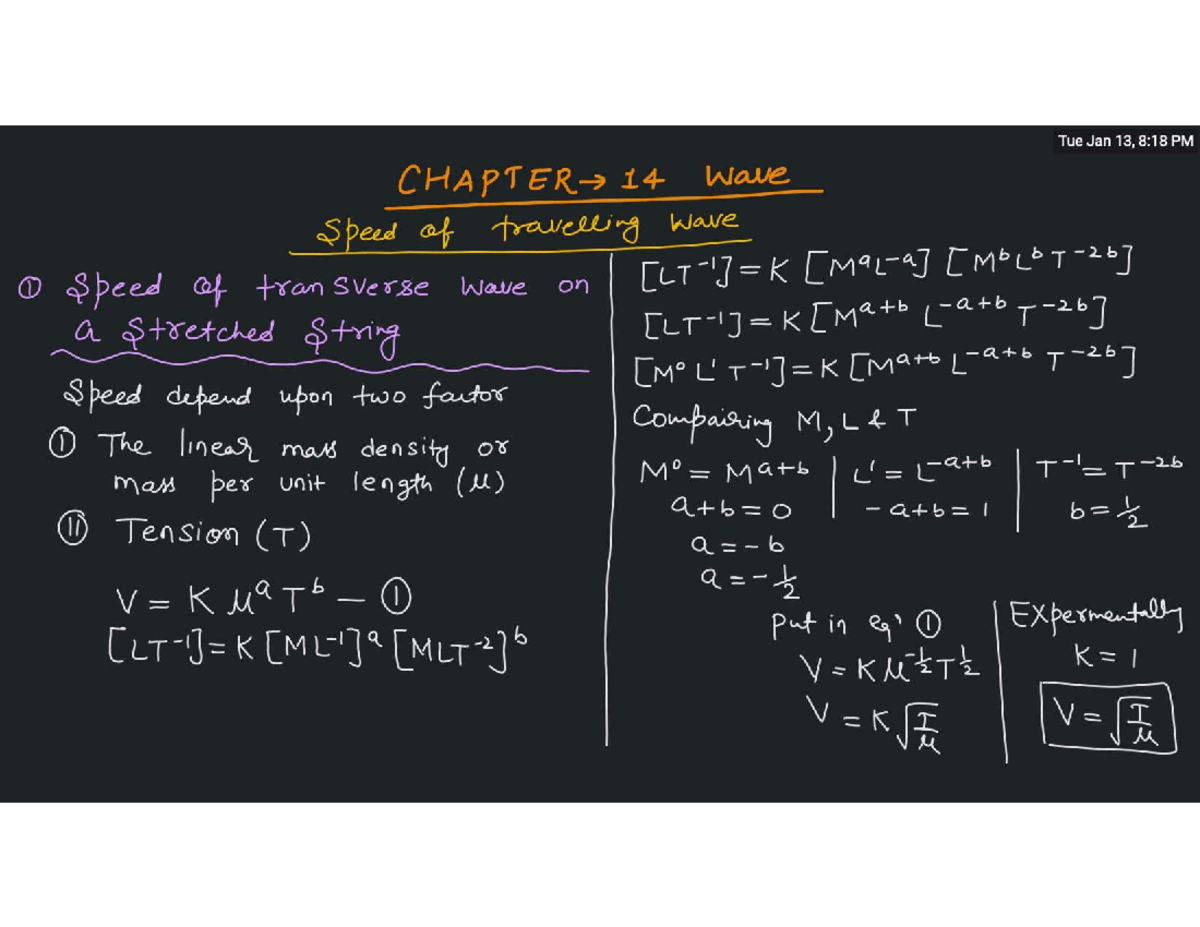 Tue Jan 13, 8:18 PM
CHAPTER→ 14 Wave
Speed of travelling wave
① Speed of transverse wave on
a Stretched String
Speed depend upon two factor
Ⓘ The linear mass density or
mass per unit length (μ)
Ⓘⓘ Tension (T)
V = K μᵃ Tᵇ — ①
[LT⁻¹] = K [ML⁻¹]ᵃ [MLT⁻²]ᵇ
[LT⁻¹] = K [MᵃL⁻ᵃ] [MᵇLᵇT⁻²ᵇ]
[LT⁻¹] = K [Mᵃ⁺ᵇ L⁻ᵃ⁺ᵇ T⁻²ᵇ]
[M⁰ L¹ T⁻¹] = K [Mᵃ⁺ᵇ L⁻ᵃ⁺ᵇ T⁻²ᵇ]
Compairing M, L & T
M⁰ = Mᵃ⁺ᵇ | L¹ = L⁻ᵃ⁺ᵇ | T⁻¹ = T⁻²ᵇ
a+b=0 | -a+b=1 | b=½
a=-b
a=-½
Put in eqⁿ ①
V = K μ^-½ T^½
V = K √(T/μ)
EXpermentally
K = 1
V = √(T/μ)